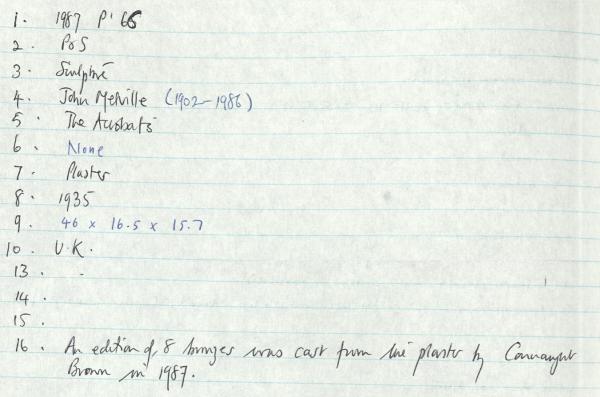 1. 1987 P' 66
2. P o S
3. Sculpture
4. John Melville (1902-1986)
5. The Acrobats
6. None
7. Plaster
8. 1935
9. 46 x 16.5 x 15.7
10. U.K.
13. .
14.
15.
16. An edition of 8 bronzes was cast from the plaster by Connaught
Brown in 1987.